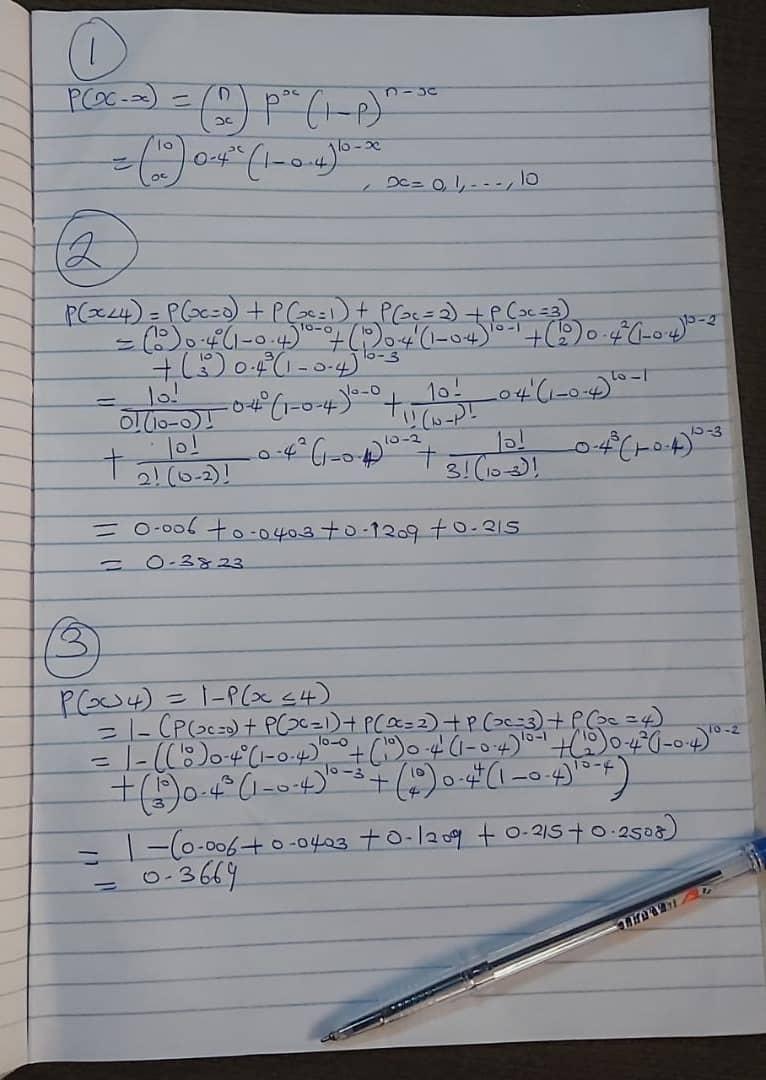 1
P(x-x) = (n x) p^x (1-p)^n-x
= (10 x) 0.4^x (1-0.4)^10-x
, x = 0, 1, ..., 10
2
P(x<4) = P(x=0) + P(x=1) + P(x=2) + P(x=3)
= (10 0) 0.4^0 (1-0.4)^10-0 + (10 1) 0.4^1 (1-0.4)^10-1 + (10 2) 0.4^2 (1-0.4)^10-2
+ (10 3) 0.4^3 (1-0.4)^10-3
= 10!/0!(10-0)! 0.4^0 (1-0.4)^10-0 + 10!/1!(10-1)! 0.4^1 (1-0.4)^10-1
+ 10!/2!(10-2)! 0.4^2 (1-0.4)^10-2 + 10!/3!(10-3)! 0.4^3 (1-0.4)^10-3
= 0.006 + 0.0403 + 0.1209 + 0.215
= 0.3823
3
P(x>4) = 1-P(x ≤ 4)
= 1-(P(x=0) + P(x=1) + P(x=2) + P(x=3) + P(x=4)
= 1-((10 0) 0.4^0 (1-0.4)^10-0 + (10 1) 0.4^1 (1-0.4)^10-1 + (10 2) 0.4^2 (1-0.4)^10-2
+ (10 3) 0.4^3 (1-0.4)^10-3 + (10 4) 0.4^4 (1-0.4)^10-4)
= 1-(0.006 + 0.0403 + 0.1209 + 0.215 + 0.2508)
= 0.3669